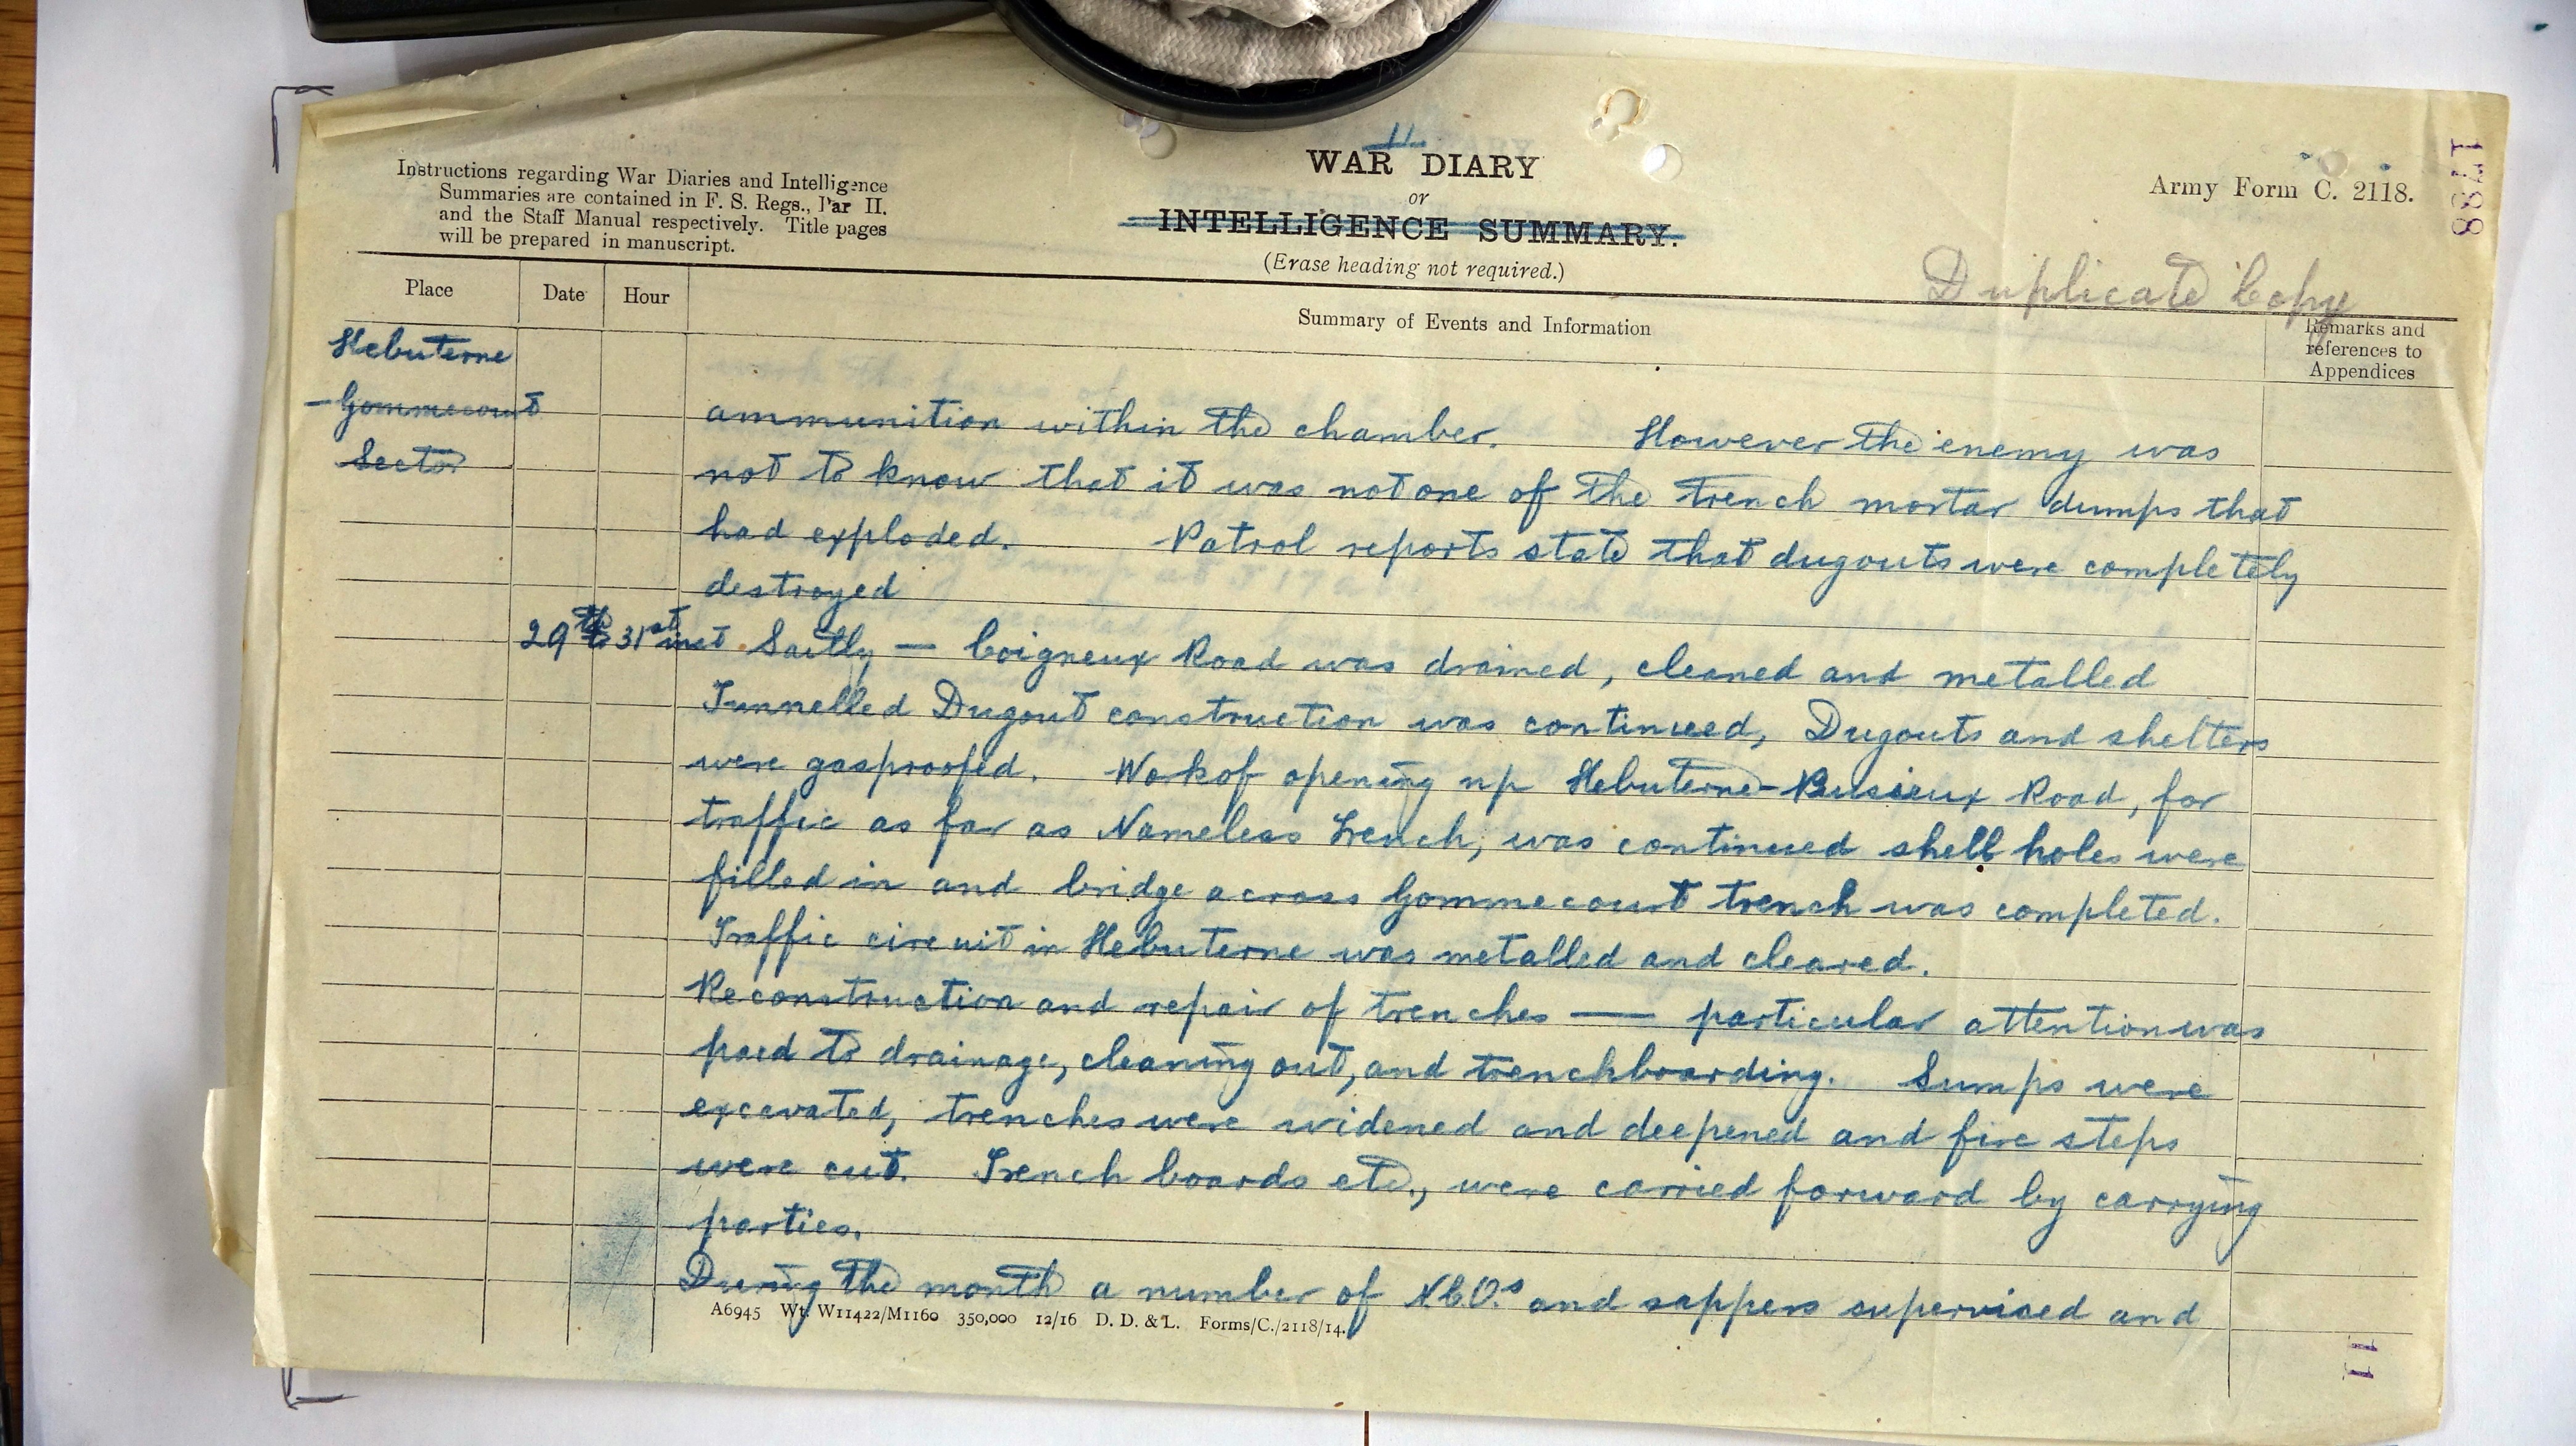 11.
Instructions regarding War Diaries and Intelligence
Summaries are contained in F. S. Regs., Par II.
and the Staff Manual respectively. Title pages
will be prepared in manuscript.
WAR DIARY
or
INTELLIGENCE SUMMARY.
(Erase heading not required.)
Army Form C. 2118.
1788
Duplicate Copy
Place
Date
Hour
Summary of Events and Information
Remarks and
references to
Appendices
Hebuterne
- Gommecourt
Sector
ammunition within the chamber. However the enemy was
not to know that it was not one of the trench mortar dumps that
had exploded. Patrol reports state that dugouts were completely
destroyed
29th to 31st inst Sailly — Coigneux Road was drained, cleaned and metalled
Tunnelled Dugout construction was continued, Dugouts and shelters
were gasproofed. Wok of opening up Hebuterne - Pusieux Road, for
traffic as far as Nameless Trench, was continued shell holes were
filled in and bridge across Gommecourt trench was completed.
Traffic circuit in Hebuterne was metalled and cleared.
Reconstruction and repair of trenches — particular attention was
paid to drainage, cleaning out, and trenchboarding. Sumps were
excavated, trenches were widened and deepened and fire steps
were cut. Trench boards etc., were carried forward by carrying
parties.
During the month a number of N.C.O.s and sappers supervised and
A6945 Wt. W11422/M1160 350,000 12/16 D. D. & L. Forms/C./2118/14.
11